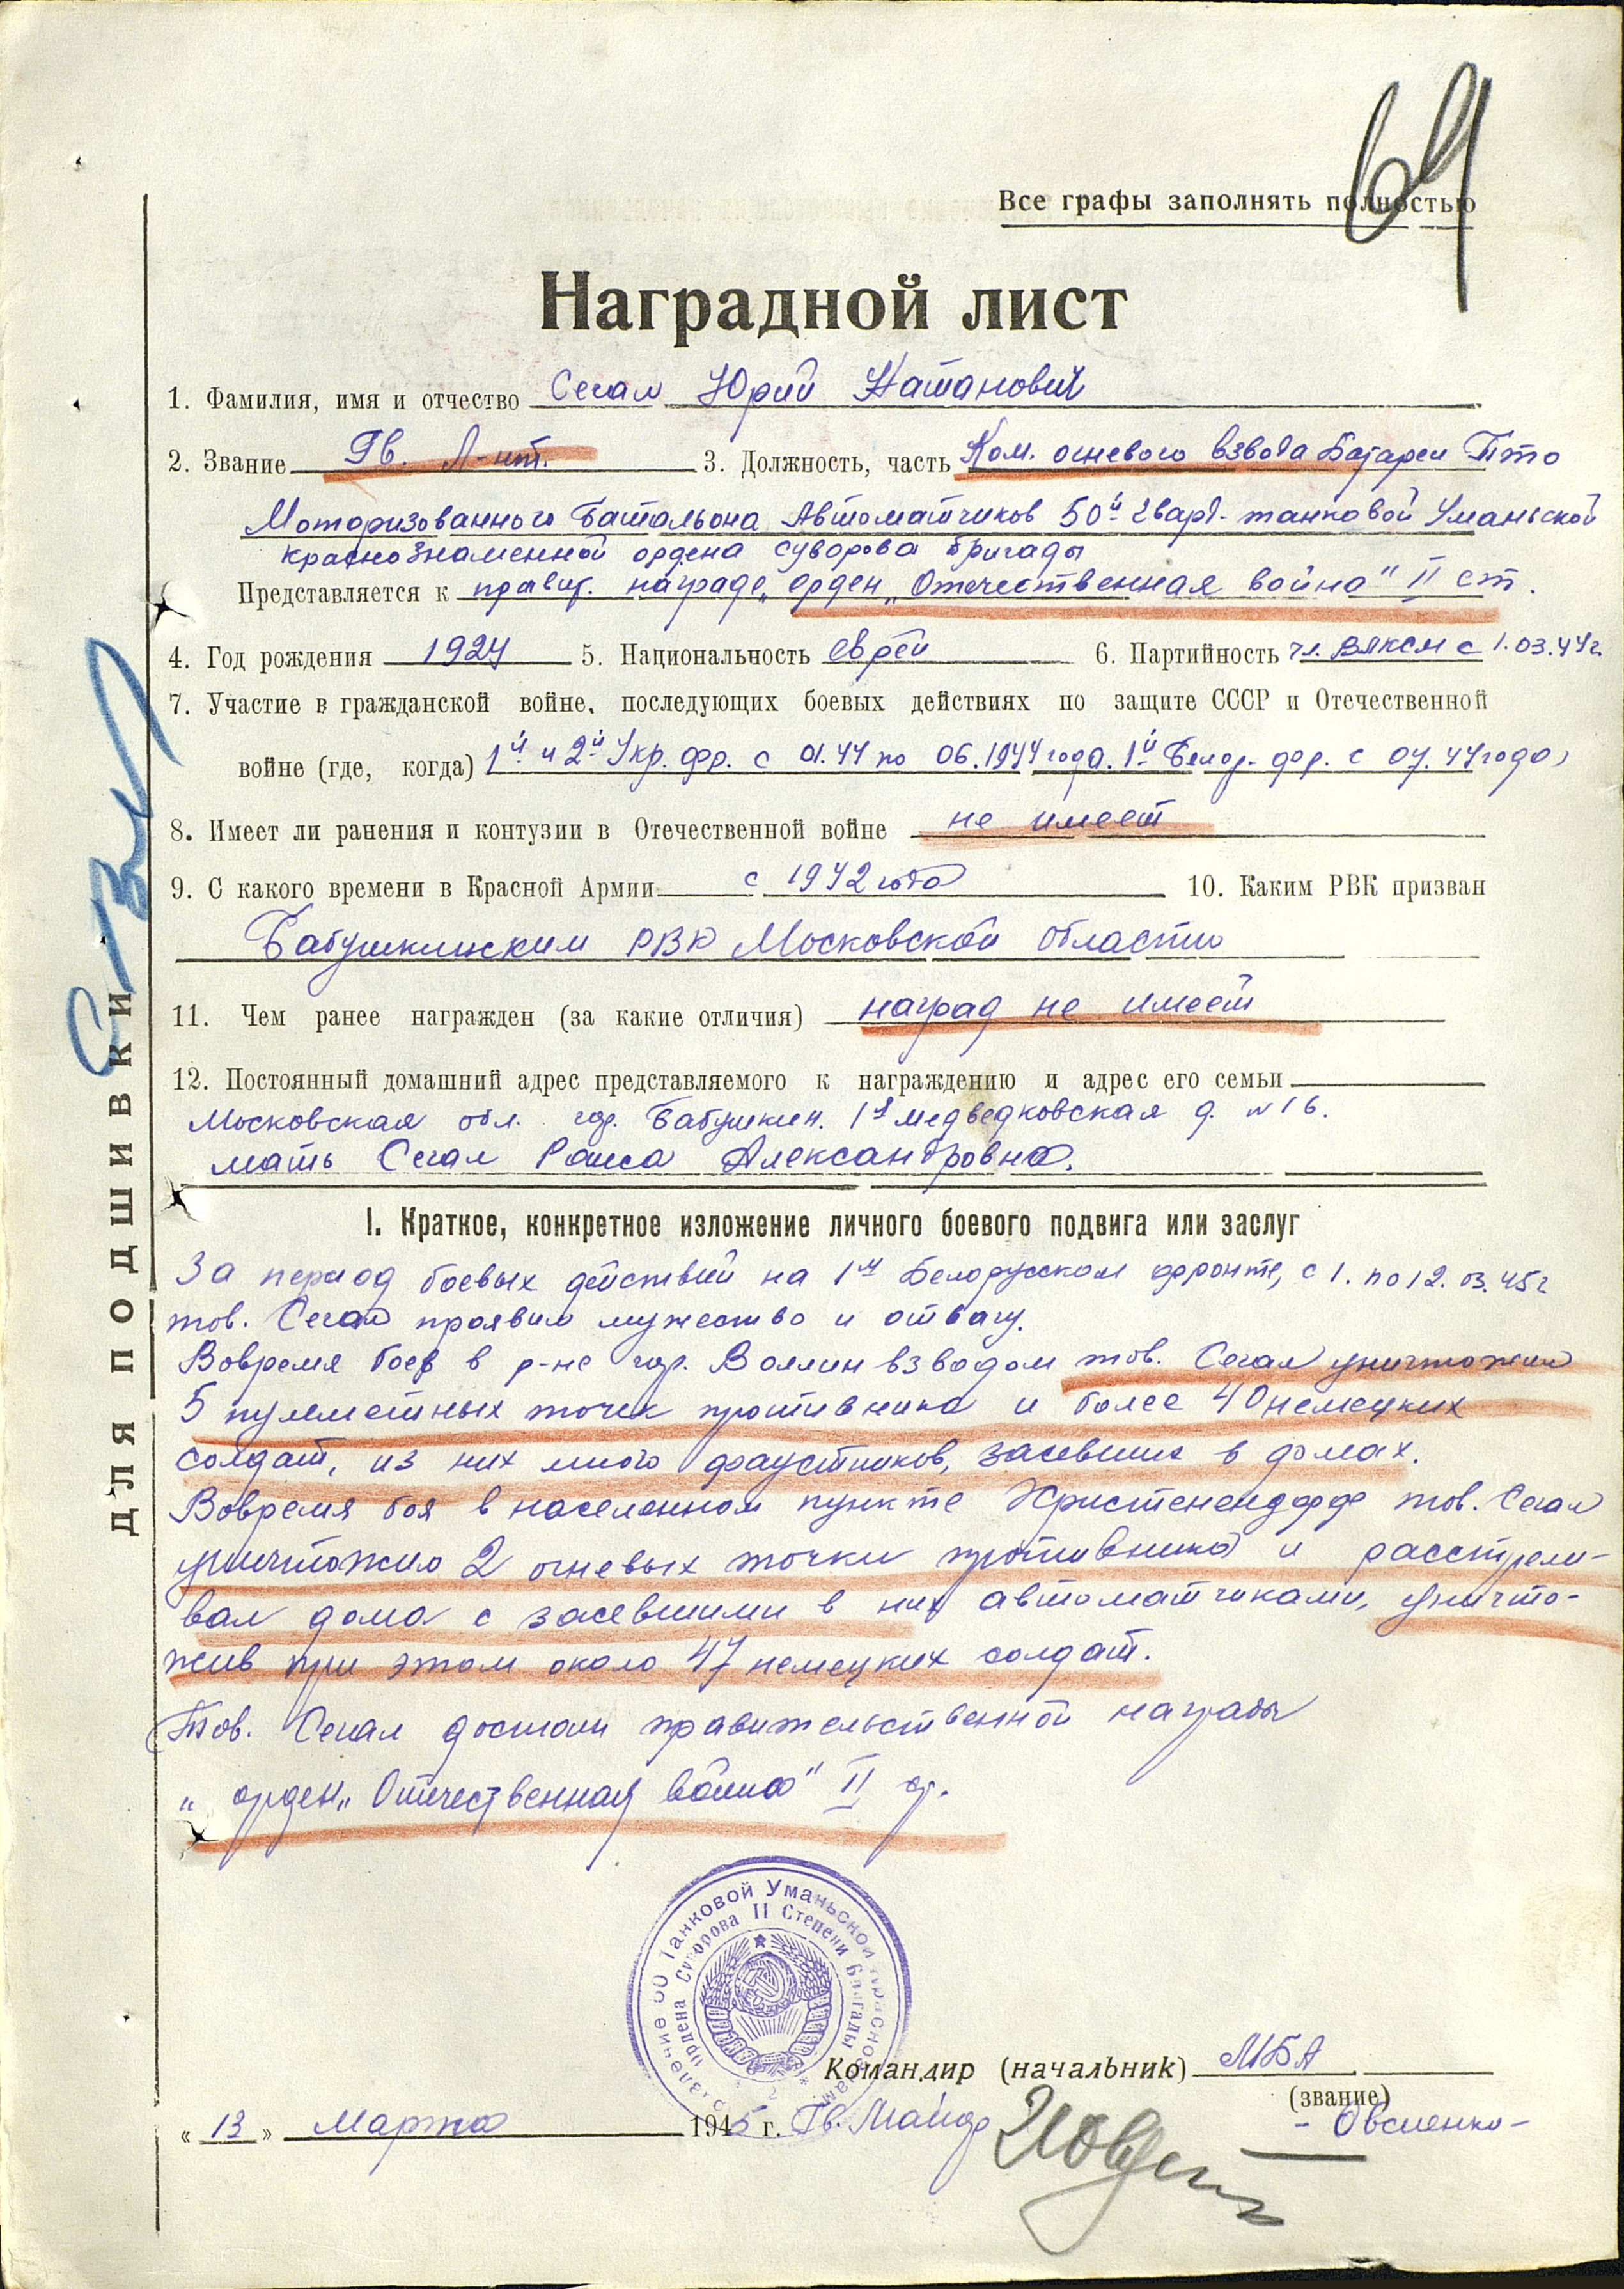 64
Все графы заполнять полностью
Наградной лист
1. Фамилия, имя и отчество Сегал Юрий Натанович
2. Звание Гв. Л-нт. 3. Должность, часть Ком. огневого взвода Батареи Пто
Моторизованного Батальона Автоматчиков 50й гвард. танковой Уманьской
краснознаменной ордена суворова бригады
Представляется к правит. награде „орден „Отечественная война" II ст.
4. Год рождения 1924 5. Национальность еврей 6. Партийность чл. ВЛКСМ с 1.03.44г
7. Участие в гражданской войне, последующих боевых действиях по защите СССР и Отечественной
войне (где, когда) 1й и 2й Укр. фр. с 01.44 по 06.1944 года. 1й Белор. фр. с 07.44 года
8. Имеет ли ранения и контузии в Отечественной войне не имеет
9. С какого времени в Красной Армии с 1942 года 10. Каким РВК призван
Бабушкинским РВК Московской области
11. Чем ранее награжден (за какие отличия) наград не имеет
12. Постоянный домашний адрес представляемого к награждению и адрес его семьи
Московская обл. гор. Бабушкин. 1я медведковская д. №16.
мать Сегал Раиса Александровна.
I. Краткое, конкретное изложение личного боевого подвига или заслуг
За период боевых действий на 1м Белорусском фронте, с 1. по 12. 03. 45г
тов. Сегал проявил мужество и отвагу.
Вовремя боев в р-не гор. Воллин взводом тов. Сегал уничтожил
5 пулеметных точек противника и более 40 немецких
солдат, из них много фаустников, засевших в домах.
Вовремя боя в населенном пункте Христенендорф тов. Сегал
уничтожил 2 огневых точки противника и расстрели-
вал дома с засевшими в них автоматчиками, уничто-
жив при этом около 47 немецких солдат.
Тов. Сегал достоин правительственной награды
„орден „Отечественная война" II ст.
Танковой Уманьской Краснознам
ордена Суворова II Степени Бригады
Командир (начальник) МБА
(звание)
« 13 » Марта 1945 г. Гв. Майор - Овсиенко -
ДЛЯ ПОДШИВКИ